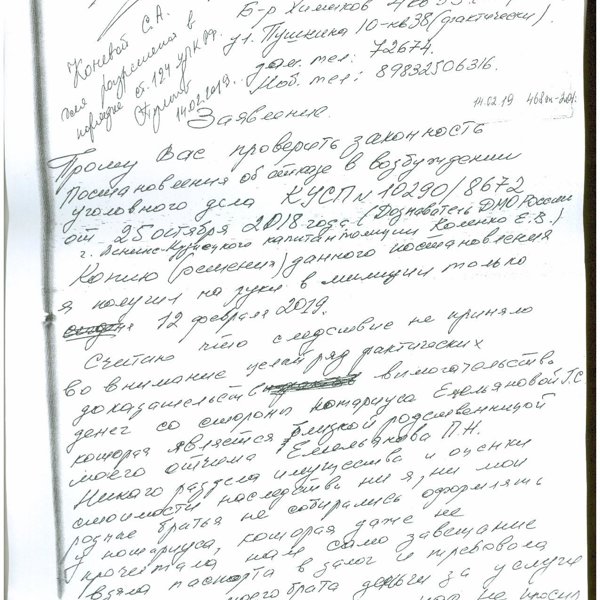 Коневой С.А.
для разрешения в
порядке ст. 124 УПК РФ.
14.02.2019.
Б-р Химиков
ул. Пушкина 10-кв38 (фактически).
дом. тел: 72674.
Моб. тел: 89832506316.
14.02.19
Заявление.
Прошу Вас проверить законность
Постановления об отказе в возбуждении
уголовного дела КУСП N 10290/8672
от 25 октября 2018 года (Дознаватель ДМО России
г. Ленинск-Кузнецкого капитан полиции Коленко Е.В.)
Копию (решения) данного постановления
я получил на руки в милиции только
12 февраля 2019.
Считаю что следствие не приняло
во внимание целый ряд фактических
доказательств вымогательства
денег со стороны нотариуса Емельяновой Г.С
которая является близкой родственницой
моего отчима Емельянова П.Н.
Никого раздела имущества и оценки
стоимости наследства ни я, ни мои
родные братья не собирались оформлять
у нотариуса, которая даже не
прочитала нам само завещание
взяла паспорта в залог и требовала
моего брата деньги за услуги
не просил